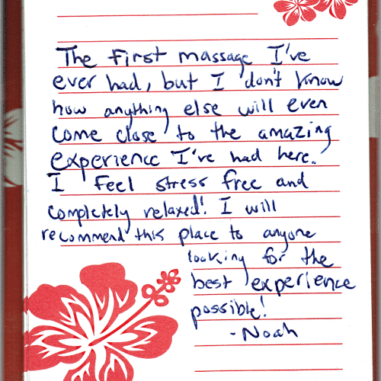 The first massage I've
ever had, but I don't know
how anything else will even
come close to the amazing
experience I've had here.
I feel stress free and
completely relaxed! I will
recommend this place to anyone
looking for the
best experience
possible!
-Noah